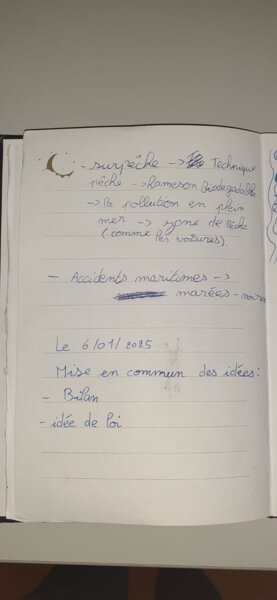 - surpêche -> Technique
pêche -> hameson Biodegadable
-> la pollution en plein
mer -> zone de Pêche
(comme les voitures).
- Accidents maritimes ->
marées - noires
Le 6/01/2025
Mise en commun des idées:
- Bilan
- idée de loi